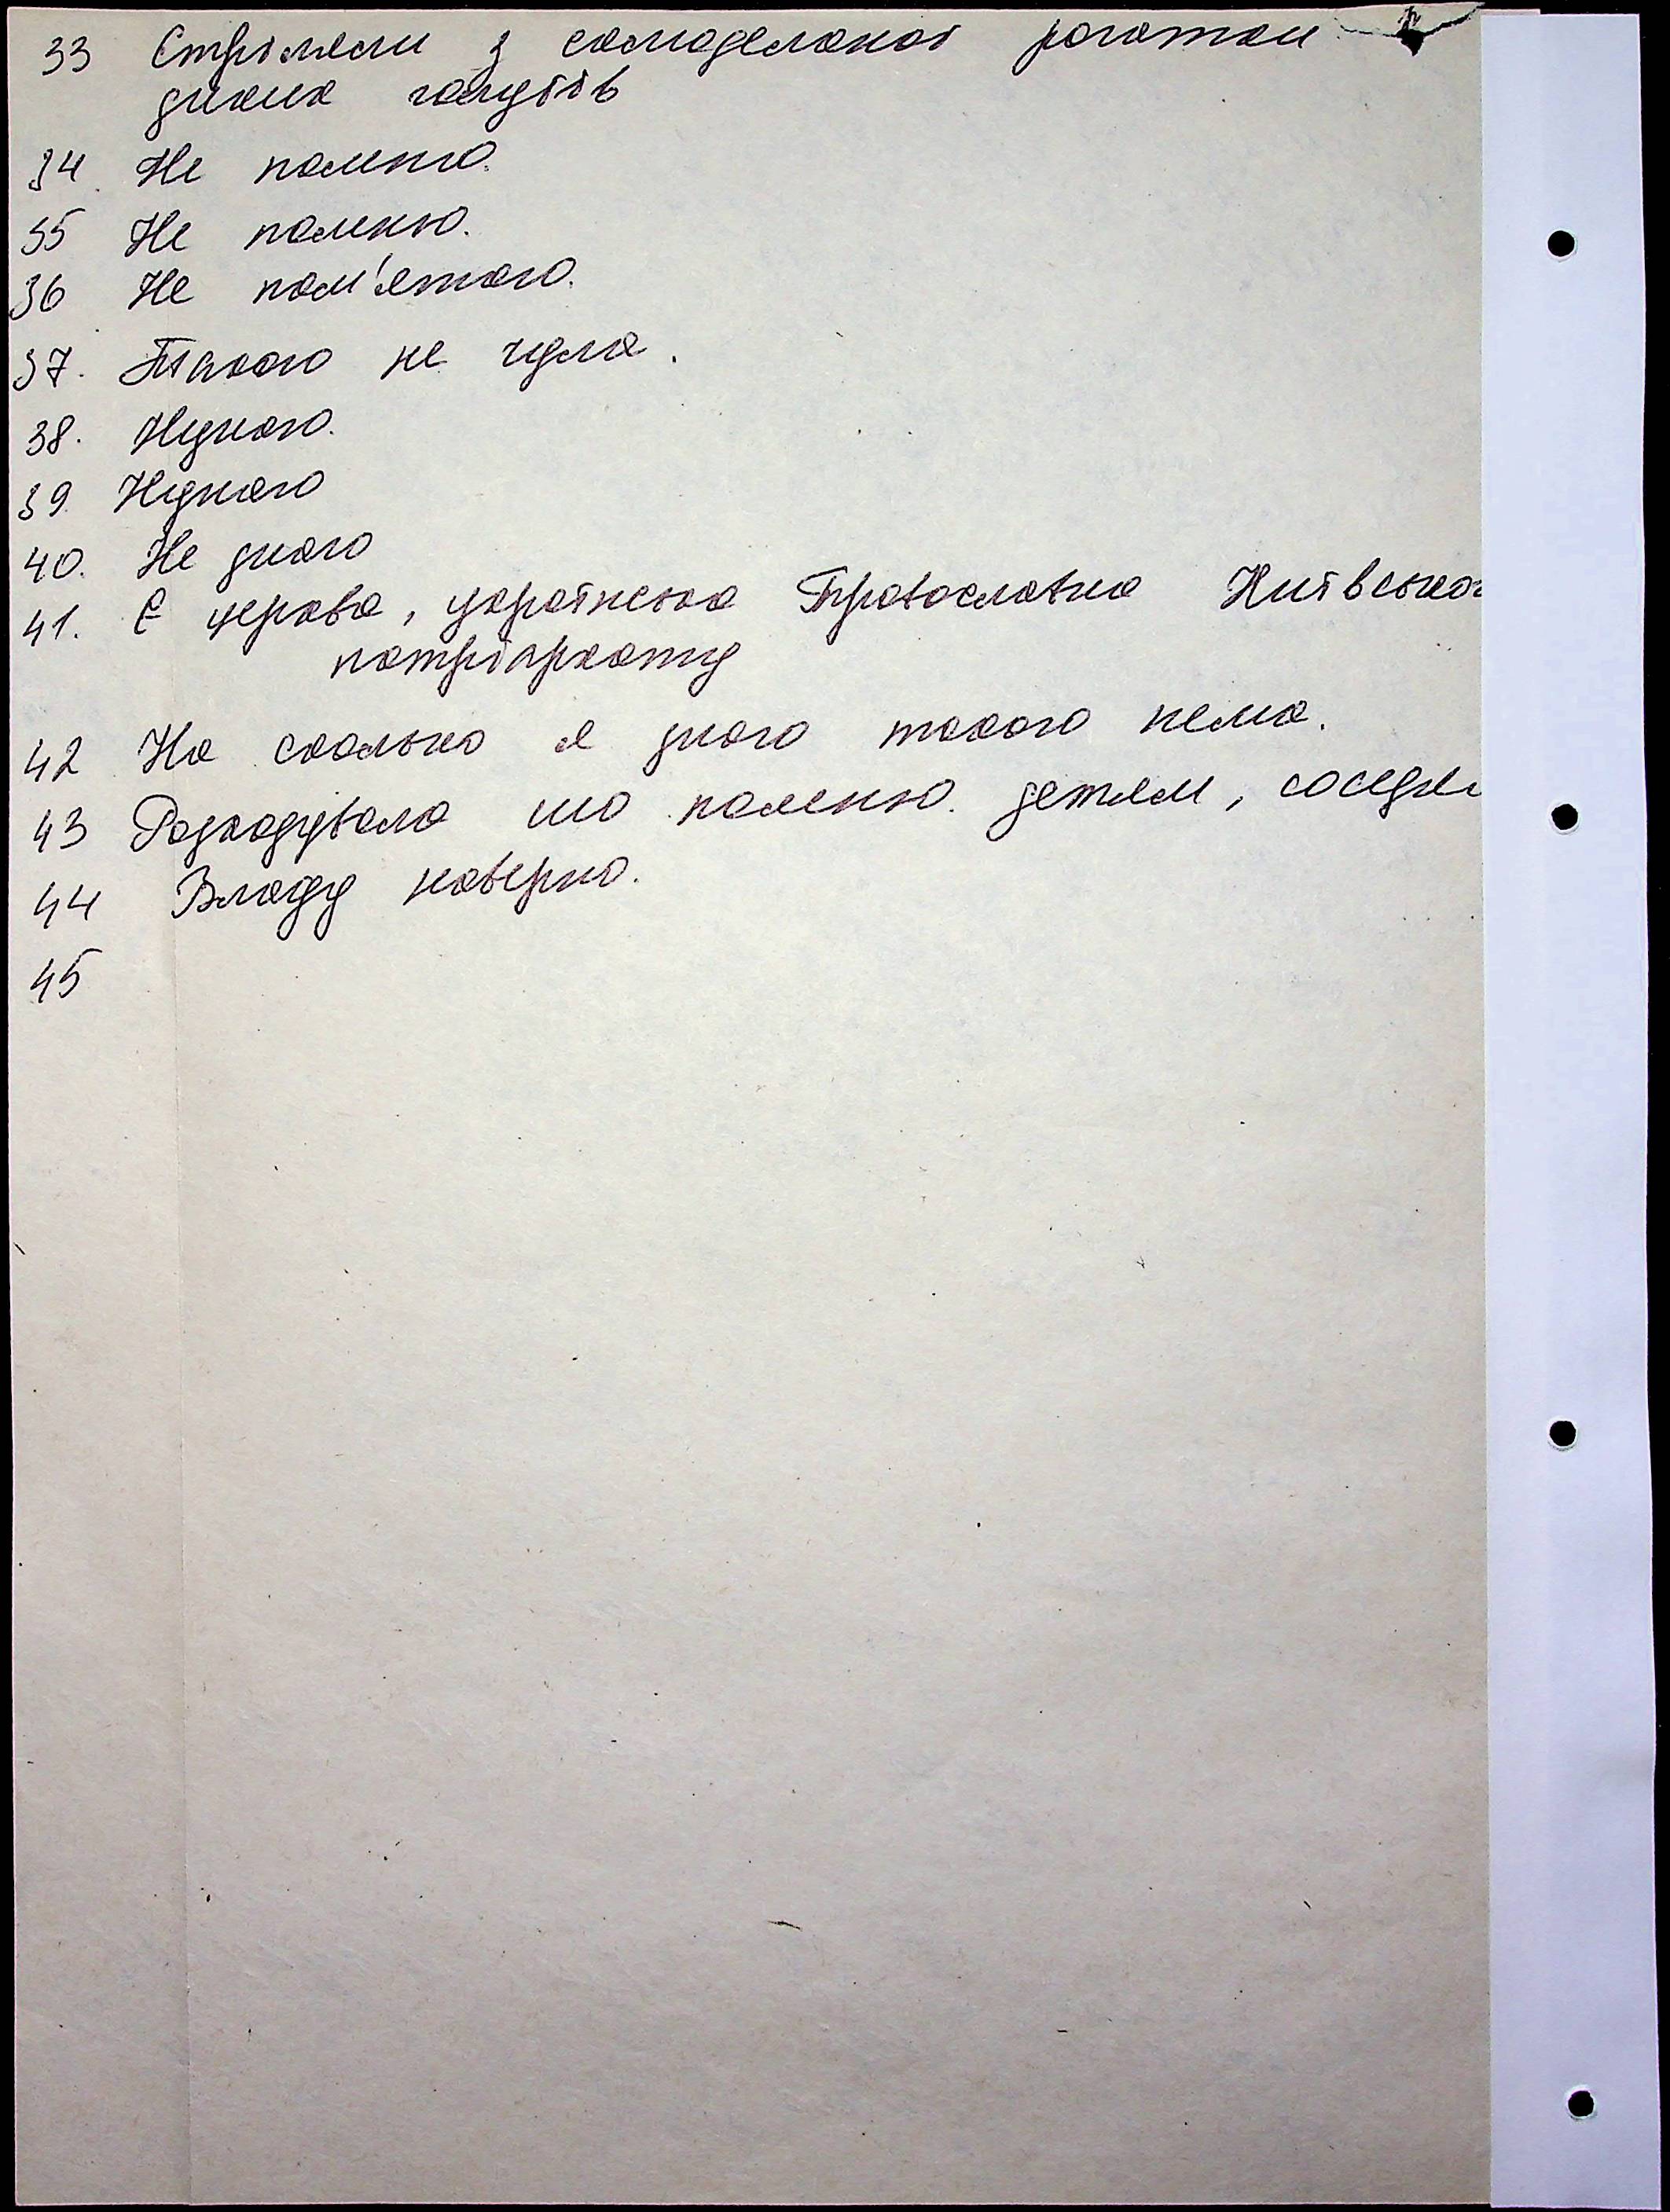 33 Стріляли з самоделаної рогатки
диких голубів
34. Не помню.
35 Не помню.
36 Не пам'ятаю.
37. Такого не чула.
38. Нідкого.
39. Нідкого
40. Не знаю
41. Є церква, українська Православна Київсько
патріархату
42 На сколько я знаю такого нема.
43 Розказувала шо помню. детям, соседя
44 Владу наверно.
45